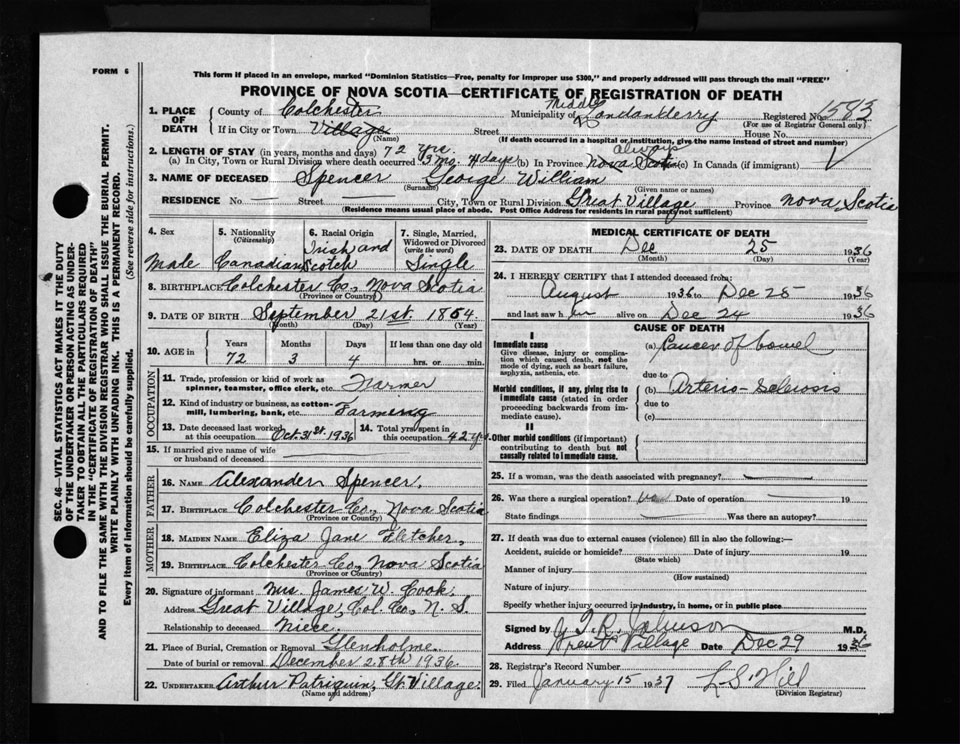 FORM 6
This form if placed in an envelope, marked "Dominion Statistics—Free, penalty for improper use $300," and properly addressed will pass through the mail "FREE"
PROVINCE OF NOVA SCOTIA—CERTIFICATE OF REGISTRATION OF DEATH
1. PLACE OF DEATH
County of Colchester Municipality of Middle Londonderry Registered No. 1583
(For use of Registrar General only)
If in City or Town Village Street House No.
(Name) (If death occurred in a hospital or institution, give the name instead of street and number)
2. LENGTH OF STAY (in years, months and days) 72 yrs. always
(a) In City, Town or Rural Division where death occurred 3 mo. 4 days (b) In Province Nova Scotia (c) In Canada (if immigrant)
3. NAME OF DECEASED Spencer George William
(Surname) (Given name or names)
RESIDENCE No. — Street — City, Town or Rural Division Great Village Province Nova Scotia
(Residence means usual place of abode. Post Office Address for residents in rural parts not sufficient)
4. Sex Male
5. Nationality (Citizenship) Canadian
6. Racial Origin Irish and Scotch
7. Single, Married, Widowed or Divorced (write the word) Single
8. BIRTHPLACE Colchester Co., Nova Scotia
(Province or Country)
9. DATE OF BIRTH September 21st. 1864
(Month) (Day) (Year)
10. AGE in Years Months Days If less than one day old
72 3 4 hrs. or min.
OCCUPATION
11. Trade, profession or kind of work as spinner, teamster, office clerk, etc. Farmer
12. Kind of industry or business, as cotton-mill, lumbering, bank, etc. Farming
13. Date deceased last worked at this occupation Oct. 31st. 1936
14. Total yrs. spent in this occupation 42 yrs
15. If married give name of wife or husband of deceased
FATHER
16. NAME Alexander Spencer,
17. BIRTHPLACE Colchester Co., Nova Scotia
(Province or Country)
MOTHER
18. MAIDEN NAME Eliza Jane Fletcher,
19. BIRTHPLACE Colchester Co., Nova Scotia
(Province or Country)
20. Signature of informant Mrs. James W. Cook,
Address Great Village, Col. Co., N. S.
Relationship to deceased Niece.
21. Place of Burial, Cremation or Removal Glenholme.
Date of burial or removal December 28th 1936.
22. UNDERTAKER Arthur Patriquin, Gt. Village.
(Name and address)
MEDICAL CERTIFICATE OF DEATH
23. DATE OF DEATH Dec 25 1936
(Month) (Day) (Year)
24. I HEREBY CERTIFY that I attended deceased from:
August 1936 to Dec 25 1936
and last saw him alive on Dec 24 1936
CAUSE OF DEATH
I
Immediate cause
Give disease, injury or complication which caused death, not the mode of dying, such as heart failure, asphyxia, asthenia, etc.
(a) Cancer of bowel
due to
Morbid conditions, if any, giving rise to immediate cause (stated in order proceeding backwards from immediate cause).
(b) Arterio-Sclerosis
due to
(c)
II
Other morbid conditions (if important) contributing to death but not causally related to immediate cause.
25. If a woman, was the death associated with pregnancy?
26. Was there a surgical operation? no Date of operation 19
State findings Was there an autopsy?
27. If death was due to external causes (violence) fill in also the following:—
Accident, suicide or homicide? Date of injury 19
(State which)
Manner of injury
(How sustained)
Nature of injury
Specify whether injury occurred in industry, in home, or in public place
Signed by T. R. Johnson M.D.
Address Great Village Date Dec 29 1936
28. Registrar's Record Number
29. Filed January 15 1937 L. S. Hill
(Division Registrar)
SEC. 46—VITAL STATISTICS ACT MAKES IT THE DUTY
OF THE UNDERTAKER OR PERSON ACTING AS UNDERTAKER TO OBTAIN ALL THE PARTICULARS REQUIRED
IN THE "CERTIFICATE OF REGISTRATION OF DEATH"
AND TO FILE THE SAME WITH THE DIVISION REGISTRAR WHO SHALL ISSUE THE BURIAL PERMIT.
WRITE PLAINLY WITH UNFADING INK. THIS IS A PERMANENT RECORD.
Every item of information should be carefully supplied. (See reverse side for instructions.)